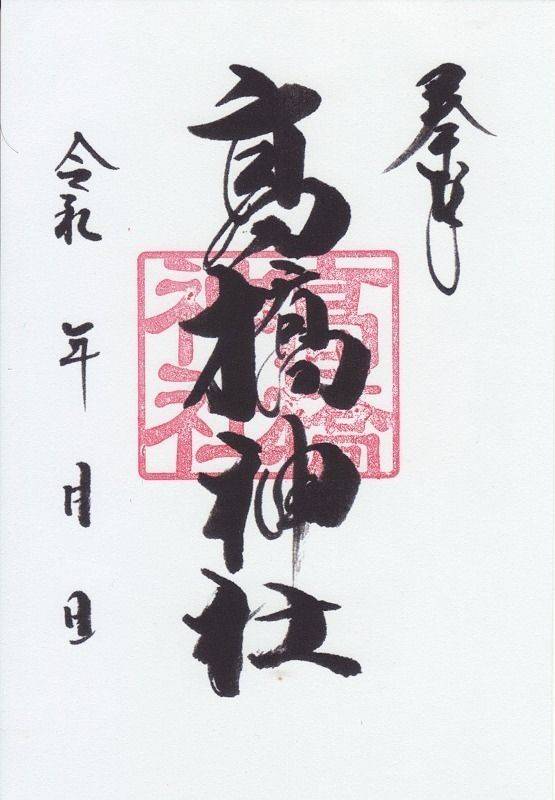 奉拝
高橋神社
高橋神社
令和 年 月 日